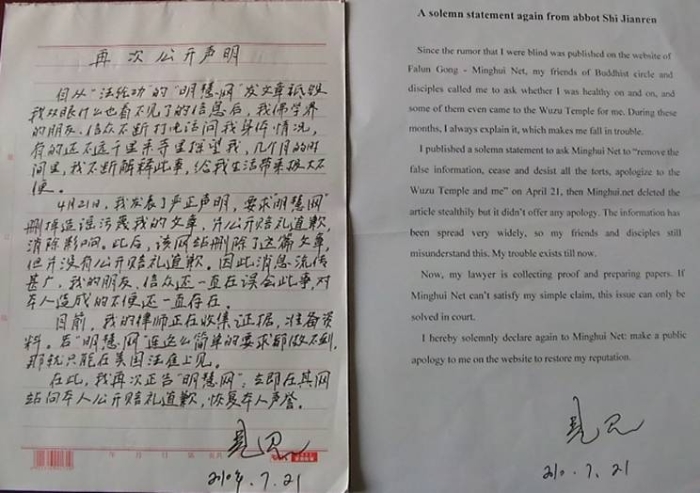 再次公开声明
自从“法轮功”的“明慧网”发文章诋毁
我双眼什么也看不见了的信息后，我佛学界
的朋友、信众不断打电话问我身体情况，
有的还不远千里来寺里探望我，几个月的时
间里，我不断解释此事，给我生活带来极大不
便。
4月21日，我发表了严正声明，要求“明慧网”
删掉造谣污蔑我的文章，并公开赔礼道歉，
消除影响。此后，该网站删除了这篇文章，
但并没有公开赔礼道歉。因此消息流传
甚广，我的朋友、信众还一直在误会此事，对
本人造成的不便还一直存在。
目前，我的律师正在收集证据，准备资
料。若“明慧网”连这么简单的要求都做不到，
那就只能在美国法庭上见。
在此，我再次正告“明慧网”，立即在其网
站向本人公开赔礼道歉，恢复本人声誉。
见忍
7.21
A solemn statement again from abbot Shi Jianren
Since the rumor that I were blind was published on the website of
Falun Gong - Minghui Net, my friends of Buddhist circle and
disciples called me to ask whether I was healthy on and on, and
some of them even came to the Wuzu Temple for me. During these
months, I always explain it, which makes me fall in trouble.
I published a solemn statement to ask Minghui Net to “remove the
false information, cease and desist all the torts, apologize to the
Wuzu Temple and me” on April 21, then Minghui.net deleted the
article stealthily but it didn't offer any apology. The information has
been spread very widely, so my friends and disciples still
misunderstand this. My trouble exists till now.
Now, my lawyer is collecting proof and preparing papers. If
Minghui Net can't satisfy my simple claim, this issue can only be
solved in court.
I hereby solemnly declare again to Minghui Net: make a public
apology to me on the website to restore my reputation.
见忍
7.21